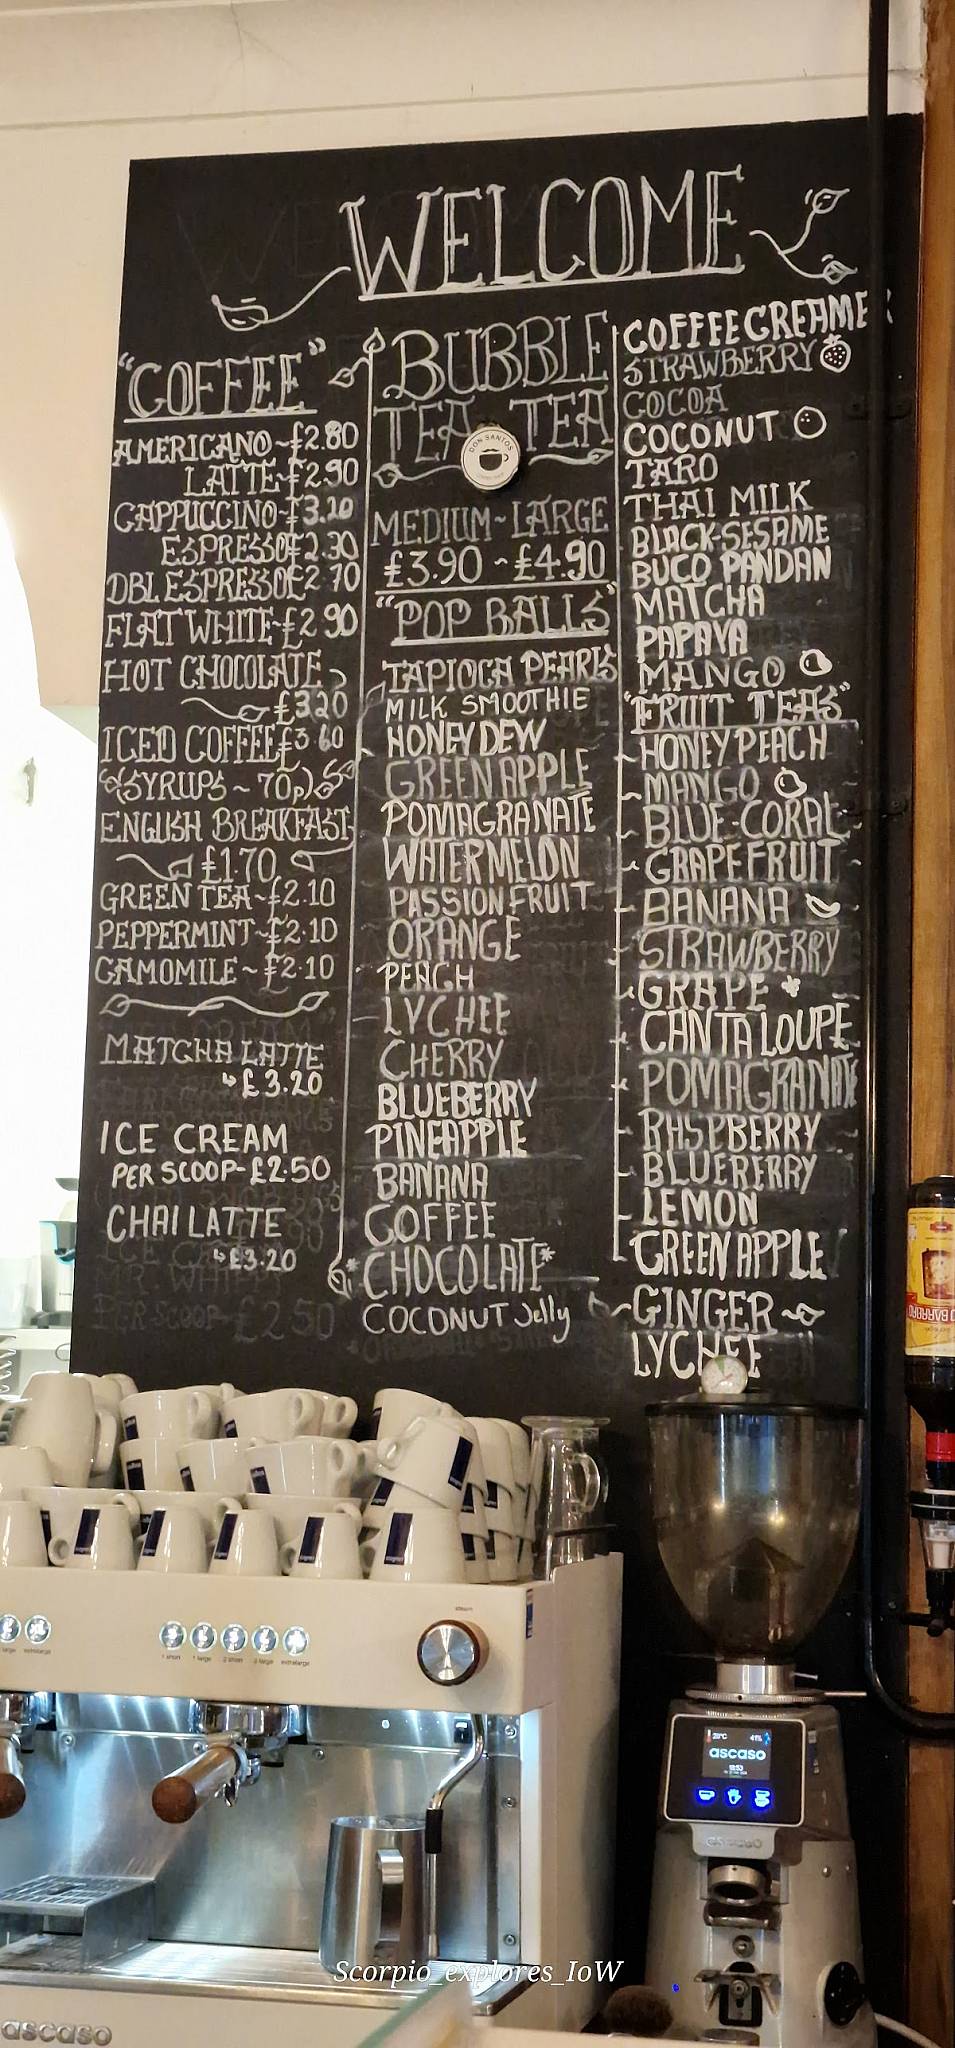 WELCOME
"COFFEE"
AMERICANO ~ £2.80
LATTE ~ £2.90
CAPPUCCINO ~ £3.20
ESPRESSO £2.30
DBL ESPRESSO £2.70
FLAT WHITE ~ £2.90
HOT CHOCOLATE
£3.20
ICED COFFEE £3.60
(SYRUPS ~ 70p)
ENGLISH BREAKFAST
£1.70
GREEN TEA ~ £2.10
PEPPERMINT ~ £2.10
CAMOMILE ~ £2.10
MATCHA LATTE
£3.20
ICE CREAM
PER SCOOP - £2.50
CHAI LATTE
£3.20
PER SCOOP £2.50
BUBBLE
TEA TEA
DON SANTOS
MEDIUM ~ LARGE
£3.90 ~ £4.90
"POP BALLS"
TAPIOCA PEARLS
MILK SMOOTHIE
HONEYDEW
GREEN APPLE
POMAGRANATE
WATERMELON
PASSION FRUIT
ORANGE
PEACH
LYCHEE
CHERRY
BLUEBERRY
PINEAPPLE
BANANA
COFFEE
*CHOCOLATE*
COCONUT Jelly
COFFEE CREAMER
STRAWBERRY
COCOA
COCONUT
TARO
THAI MILK
BLACK-SESAME
BUCO PANDAN
MATCHA
PAPAYA
MANGO
"FRUIT TEAS"
HONEY PEACH
MANGO
BLUE-CORAL
GRAPEFRUIT
BANANA
STRAWBERRY
GRAPE
CANTALOUPE
POMAGRANATE
RASPBERRY
BLUEBERRY
LEMON
GREEN APPLE
GINGER
LYCHEE
steam
1 short
1 large
2 short
2 large
extralarge
41%
ascaso
ascaso
Scorpio_explores_IoW
ascaso